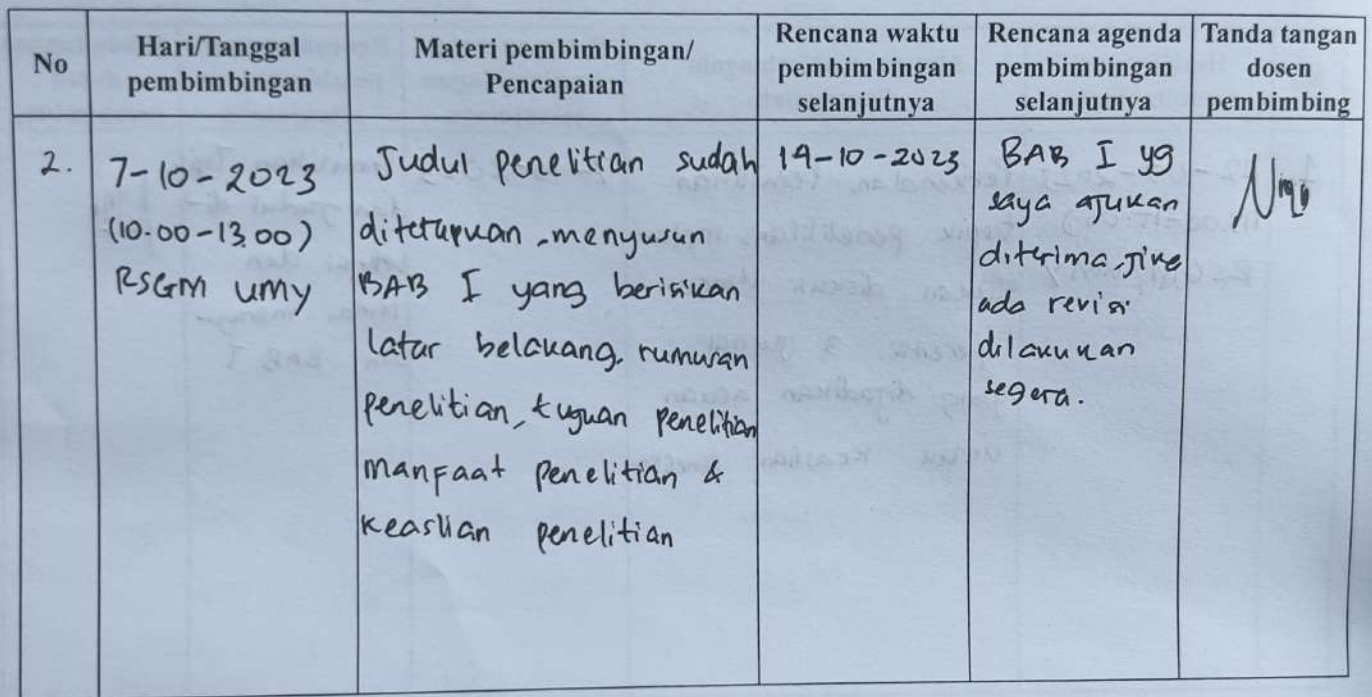 No
Hari/Tanggal
pembimbingan
Materi pembimbingan/
Pencapaian
Rencana waktu
pembimbingan
selanjutnya
Rencana agenda
pembimbingan
selanjutnya
Tanda tangan
dosen
pembimbing
2.
7-10-2023
(10.00-13.00)
RSGM UMY
Judul penelitian sudah
ditetapkan, menyusun
BAB I yang berisikan
latar belakang, rumusan
penelitian, tuguan penelitian
manfaat penelitian &
keaslian penelitian
14-10-2023
BAB I yg
saya ajukan
diterima, jika
ada revisi
dilakukan
segera.